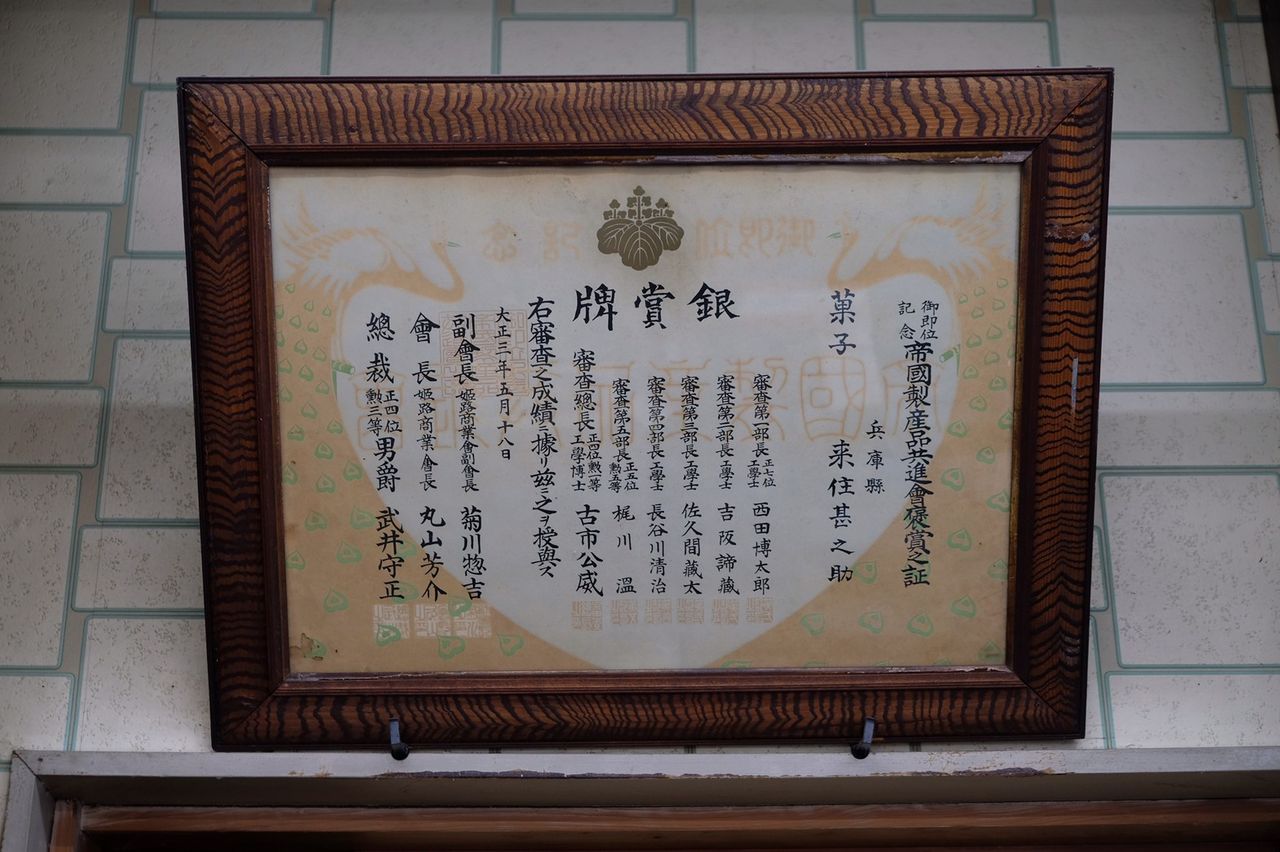 御即位記念
御即位
記念
帝國製産品共進會褒賞之証
兵庫縣
菓子 来住甚之助
銀賞牌
審査第一部長 正七位 工學士 西田博太郎
審査第二部長 工學士 吉阪諦藏
審査第三部長 工學士 佐久間藏太
審査第四部長 工學士 長谷川清治
審査第五部長 正五位 勲五等 梶川溫
審査總長 正四位勲一等 工學博士 古市公威
右審査之成績ニ據リ玆ニ之ヲ授與ス
大正三年五月十八日
副會長 姫路商業會副會長 菊川惣吉
會長 姫路商業會長 丸山芳介
總裁 正四位 勲三等 男爵 武井守正